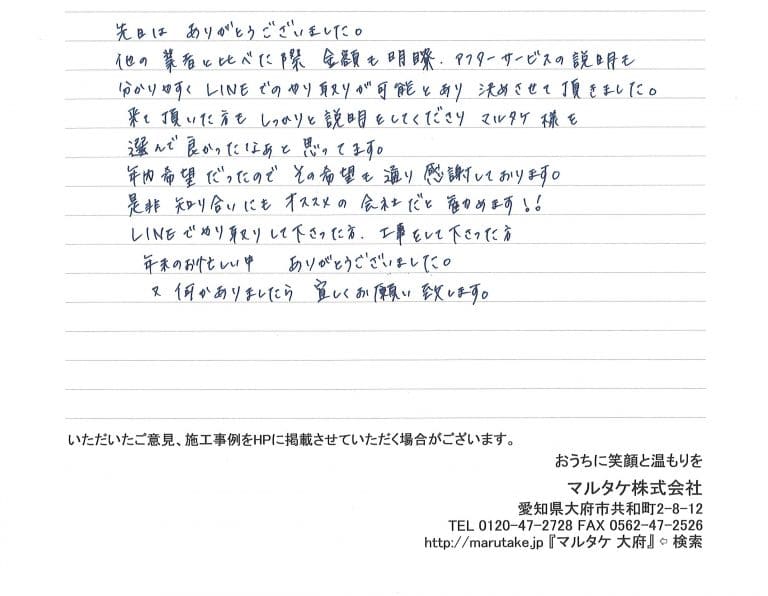 先日は ありがとうございました。
他の 業者と比べた際 金額も明瞭、アフターサービスの説明も
分かりやすく LINEでのやり取りが可能とあり 決めさせて頂きました。
来て頂いた方も しっかりと説明をしてくださり マルタケ様を
選んで良かったなあと思ってます。
年内希望だったので その希望も通り 感謝しております。
是非 知り合いにも オススメの会社だと勧めます!!
LINEでやり取りして下さった方、工事をして下さった方
年末のお忙しい中 ありがとうございました。
又 何かありましたら 宜しくお願い致します。
いただいたご意見、施工事例をHPに掲載させていただく場合がございます。
おうちに笑顔と温もりを
マルタケ株式会社
愛知県大府市共和町2-8-12
TEL 0120-47-2728 FAX 0562-47-2526
http://marutake.jp『マルタケ 大府』⇦ 検索